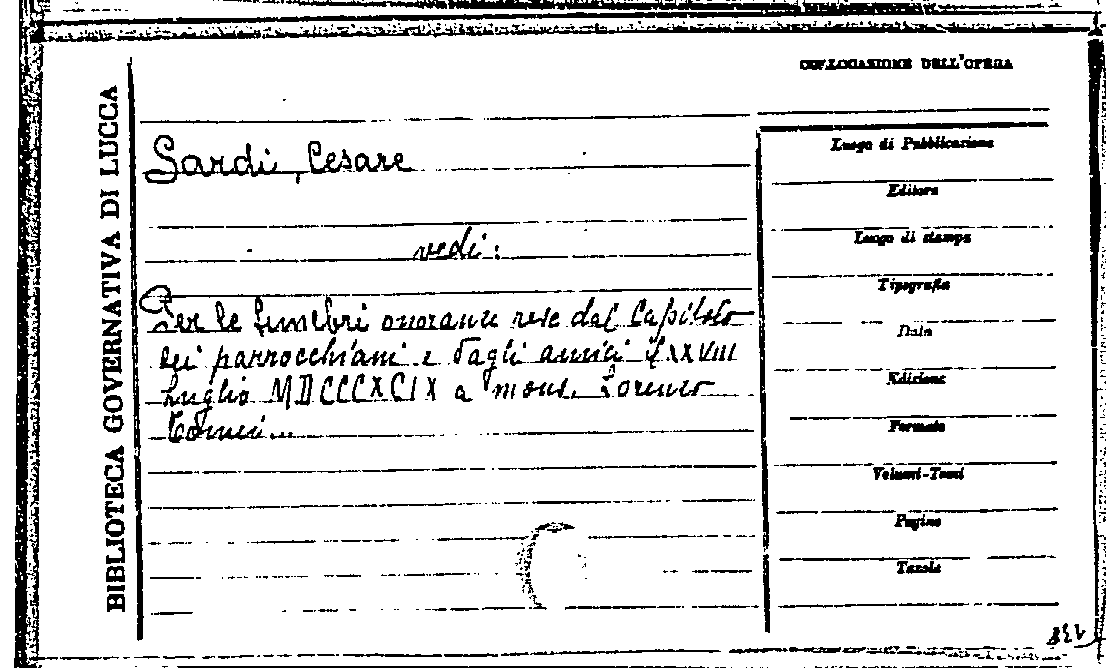 BIBLIOTECA GOVERNATIVA DI LUCCA
COLLOCAZIONE DELL'OPERA
Sardi, Cesare
vedi:
Per le funebri onoranze rese dal Capitolo
dei parrocchiani e dagli amici
Luglio MDCCCXCIX a mons. Lorenzo
Luogo di Pubblicazione
Editore
Luogo di stampa
Tipografia
Data
Edizione
Formato
Volumi-Tomi
Pagine
Tavole